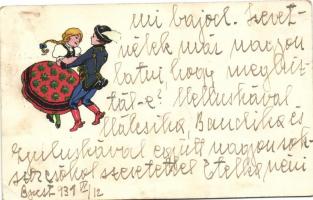 mi bajod. Szeret-
nélek már nagyon
látni, hogy meghíz-
tál-e? Melluskával
Málcsika, Bandika és
Gyuluskával együtt nagyon sok-
szor csókol szeretettel Etelka néni
Bpest 931 IV/12